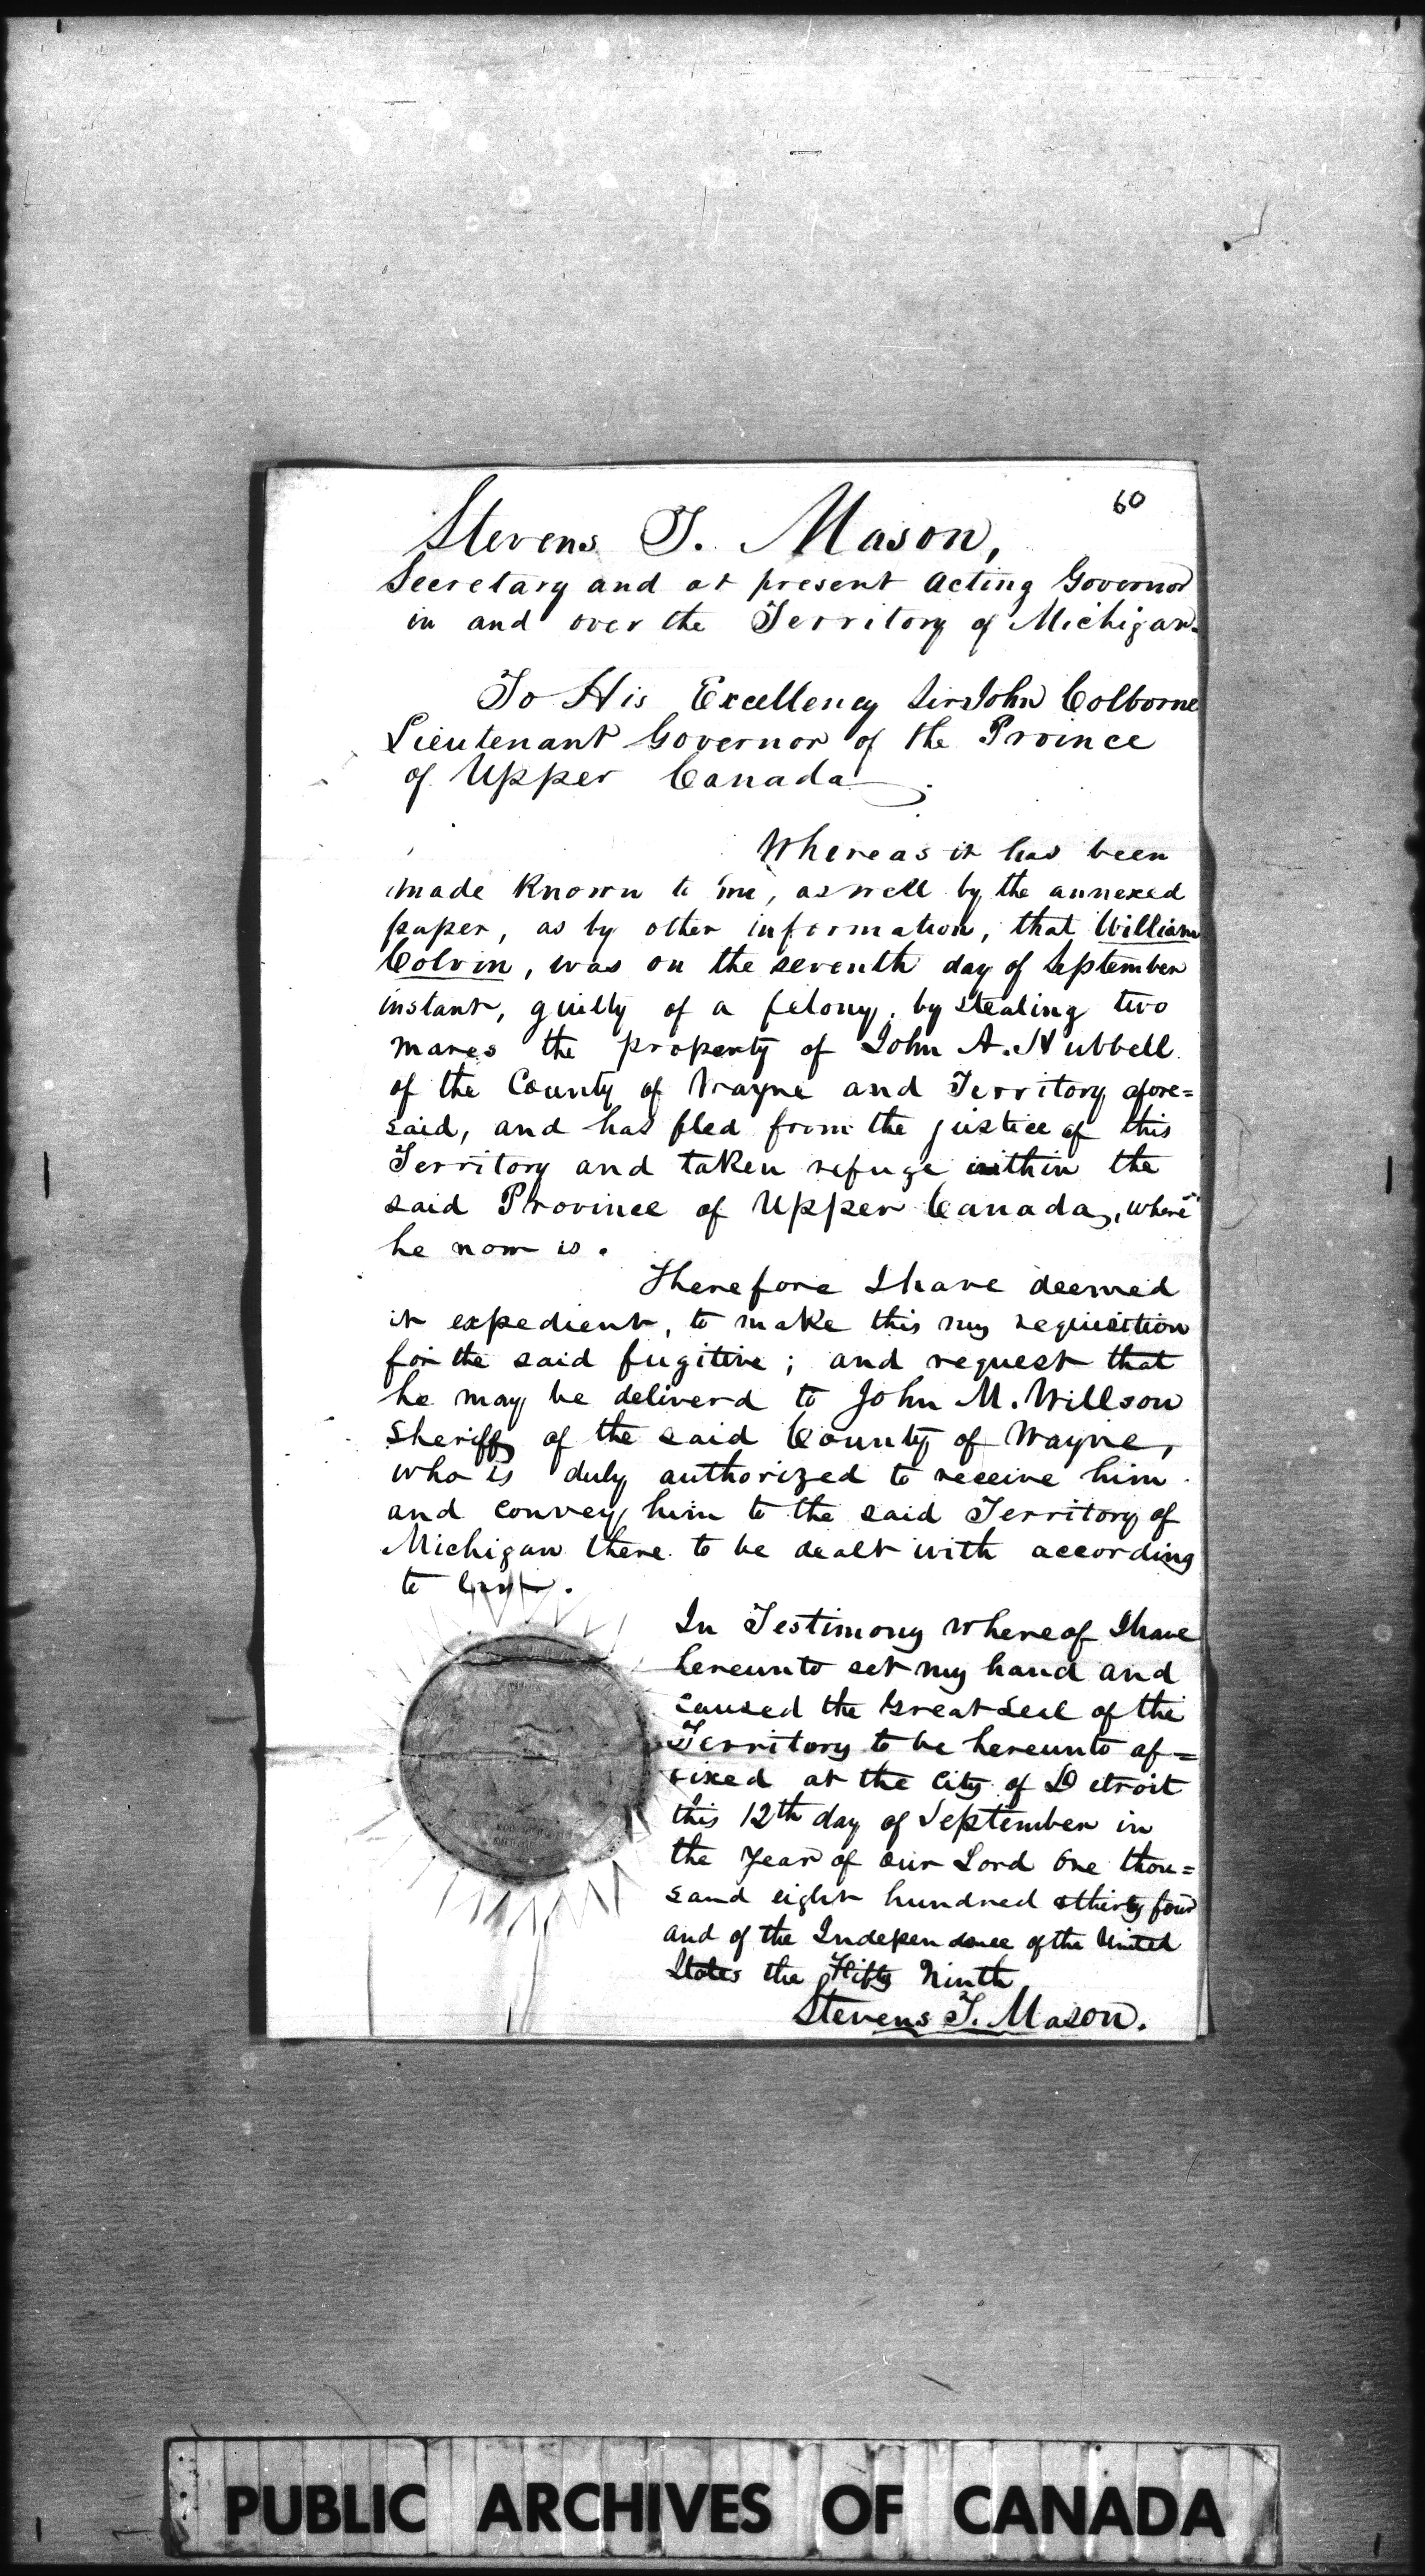 60
Stevens T. Mason,
Secretary and at present Acting Governor
in and over the Territory of Michigan.
To His Excellency Sir John Colborne
Lieutenant Governor of the Province
of Upper Canada.
Whereas it has been
made known to me, as well by the annexed
paper, as by other information, that William
Colvin, was on the seventh day of September
instant, guilty of a felony, by stealing two
mares the property of John A. Hubbell
of the County of Wayne and Territory afore=
said, and has fled from the justice of this
Territory and taken refuge within the
said Province of Upper Canada, where
he now is.
Therefore I have deemed
it expedient, to make this my requisition
for the said fugitive; and request that
he may be deliverd to John M. Willson
Sheriff of the said County of Wayne,
who is duly authorized to receive him
and convey him to the said Territory of
Michigan there to be dealt with according
to law.
In Testimony whereof I have
hereunto set my hand and
caused the Great Seal of the
Territory to be hereunto af=
fixed at the City of Detroit
this 12th day of September in
the Year of our Lord One thou=
sand eight hundred & thirty four
and of the Independence of the United
States the Fifty Ninth
Stevens T. Mason.
PUBLIC ARCHIVES OF CANADA